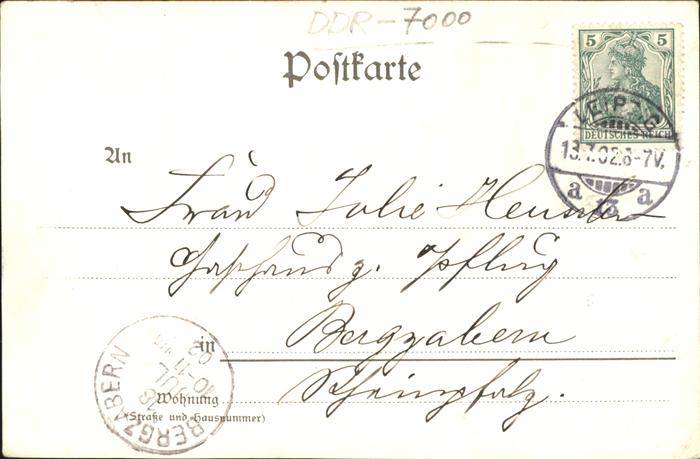 DDR-7000
Postkarte
5 5
DEUTSCHES REICH
LEIPZIG
13.7.02.6-7V.
a 13 a
An
Frau Julie
Gasthaus z. Pflug
Bergzabern
in
Rheinpfalz.
Wohnung
(Straße und Hausnummer)
BERGZABERN